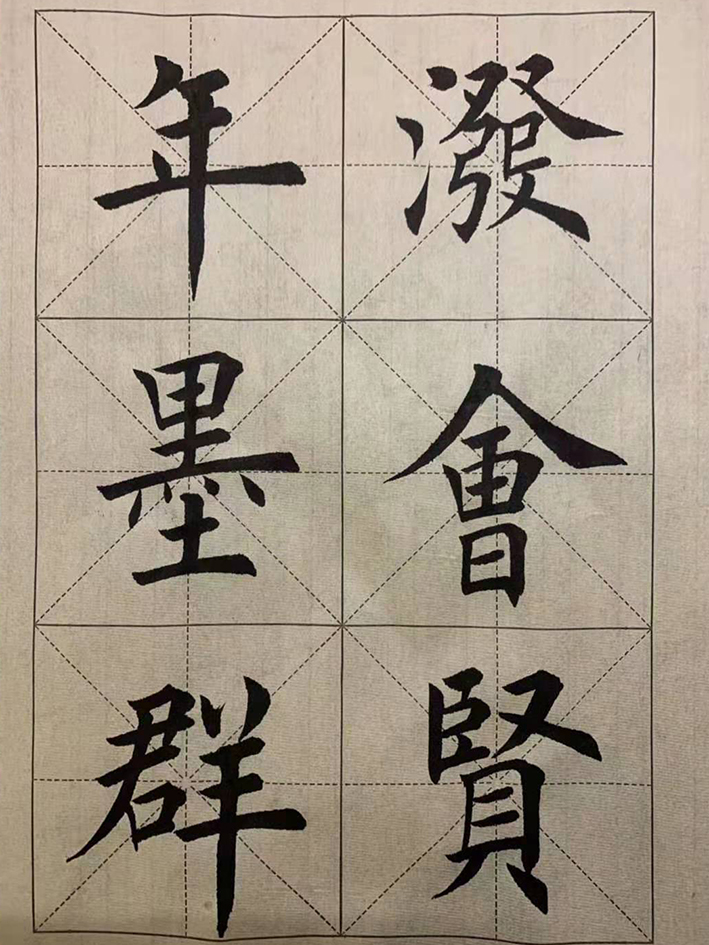 潑會賢
年墨群